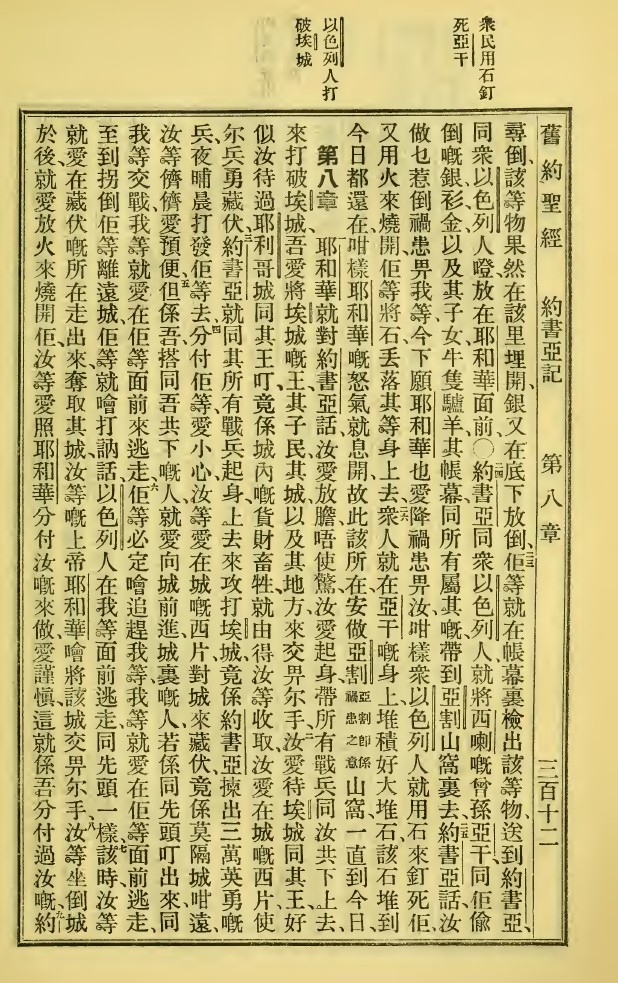 衆民用石釘
死亞干
以色列人打
破埃城
舊約聖經　約書亞記　第八章　三百十二
尋倒、該等物果然在該里埋開、銀又在底下放倒、二三佢等就在帳幕裏檢出該等物、送到約書亞、
同衆以色列人、嶝放在耶和華面前、〇二四約書亞同衆以色列人、就將西喇嘅曾孫亞干、同佢偷
倒嘅銀衫金、以及其子女牛隻驢羊其帳幕、同所有屬其嘅、帶到亞割山窩裏去、二五約書亞話、汝
做乜惹倒禍患畀我等、今下願耶和華也愛降禍患畀汝、咁樣衆以色列人就用石來釘死佢、
又用火來燒開佢等、將石丢落其等身上去、二六衆人就在亞干嘅身上、堆積好大堆石、該石堆到
今日都還在、咁樣耶和華嘅怒氣就息開、故此該所在安做亞割亞割卽係禍患之意山窩、一直到今日、
第八章　一耶和華就對約書亞話、汝愛放膽唔使驚、汝愛起身帶所有戰兵、同汝共下上去、
來打破埃城、吾愛將埃城嘅王、其子民其城、以及其地方、來交畀尔手、二汝愛待埃城同其王、好
似汝待過耶利哥城同其王叮、竟係城內嘅貨財畜牲、就由得汝等收取、汝愛在城嘅西片、使
尔兵勇藏伏、三約書亞就同其所有戰兵起身、上去來攻打埃城、竟係約書亞揀出三萬英勇嘅
兵、夜晡晨打發佢等去、四分付佢等、愛小心、汝等愛在城嘅西片、對城來藏伏、竟係莫隔城咁遠、
汝等儕儕愛預便、五但係吾搭同吾共下嘅人、就愛向城前進、城裏嘅人、若係同先頭叮出來、同
我等交戰、我等就愛在佢等面前來逃走、六佢等必定噲追趕我等、我等就愛在佢等面前逃走、
至到拐倒佢等離遠城、佢等就噲打訥話、以色列人在我等面前逃走、同先頭一樣、七該時汝等
就愛在藏伏嘅所在走出來、奪取其城、汝等嘅上帝耶和華、噲將該城交畀尔手、八汝等坐倒城
於後、就愛放火來燒開佢、汝等愛照耶和華分付汝嘅來做、愛謹慎、這就係吾分付過汝嘅、九約